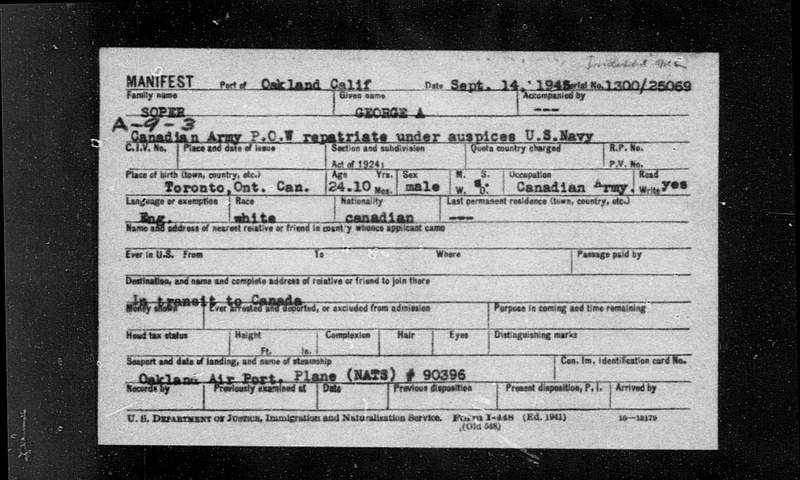 MANIFEST Port of Oakland Calif Date Sept. 14, 1945 Serial No. 1300/25069
Family name Given name Accompanied by
SOPER GEORGE A ---
A-9-3
Canadian Army P.O.W repatriate under auspices U.S.Navy
C.I.V. No. Place and date of issue Section and subdivision Quota country charged R.P. No.
Act of 1924: P.V. No.
Place of birth (town, country, etc.) Age Yrs. Sex M. S. Occupation Read
Toronto,Ont. Can. 24.10 Mos. male W. D. Canadian Army. Write yes
Language or exemption Race Nationality Last permanent residence (town, country, etc.)
Eng. white canadian ---
Name and address of nearest relative or friend in country whence applicant came
Ever in U.S. From To Where Passage paid by
Destination, and name and complete address of relative or friend to join there
In transit to Canada
Money shown Ever arrested and deported, or excluded from admission Purpose in coming and time remaining
Head tax status Height Complexion Hair Eyes Distinguishing marks
Ft. In.
Seaport and date of landing, and name of steamship Can. Im. Identification card No.
Oakland Air Port, Plane (NATS) # 90396
Records by Previously examined at Date Previous disposition Present disposition, P. I. Arrived by
U. S. DEPARTMENT OF JUSTICE, Immigration and Naturalization Service. FORM I-448 (Ed. 1941) 16-13179
(Old 548)